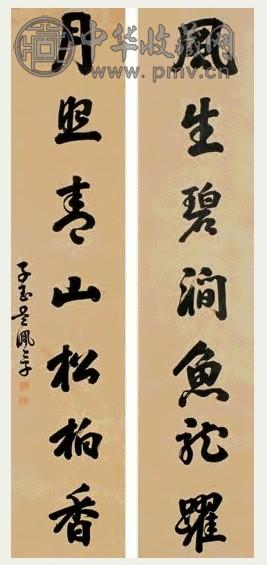 中华收藏网
www.pmv.cn
風生碧澗魚龍躍
月照青山松柏香
子玉吳佩孚